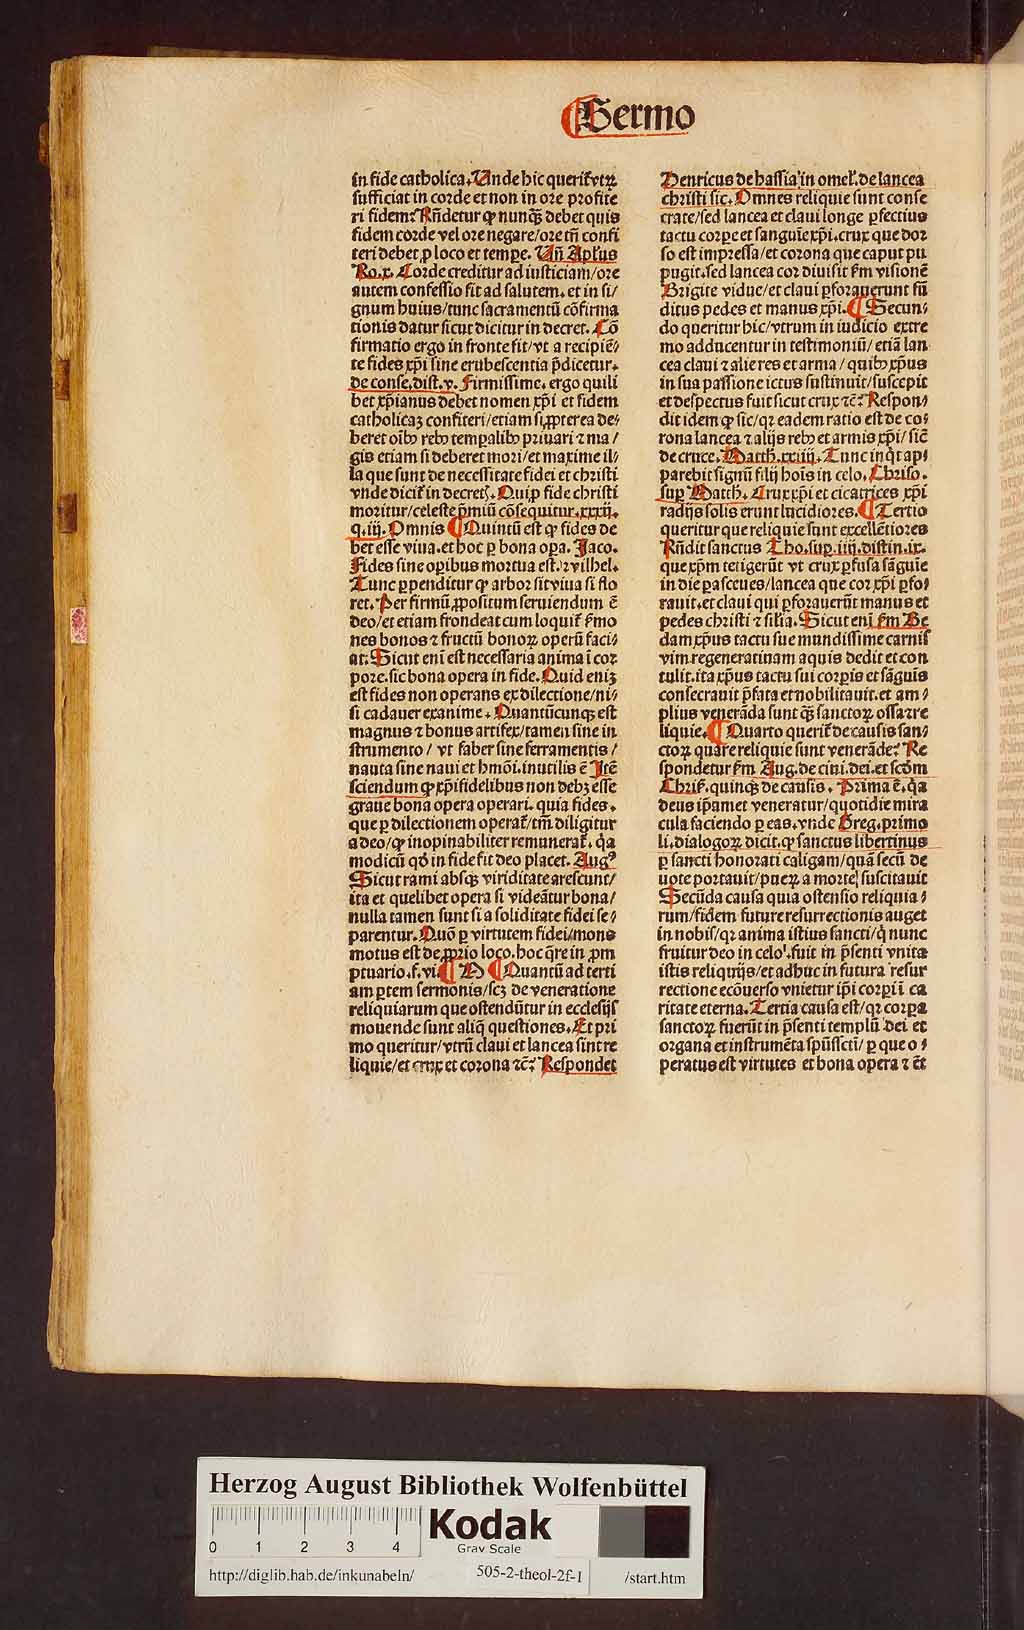 ¶Sermo
in fide catholica. Unde hic querit̄ vtꝝ
sufficiat in corde et non in ore profite
ri fidem? Rn̄detur ꝙ nunqꝫ debet quis
fidem corde vel ore negare/ore tn̄ confi
teri debet ꝓ loco et tempe. Un̄ Apl̓us
Ro.x. Corde creditur ad iusticiam/ore
autem confessio fit ad salutem. et in si/
gnum huius/tunc sacramentū cōfirma
tionis datur sicut dicitur in decret. Cō
firmatio ergo in fronte fit/vt a recipiē/
te fides xp̄i sine erubescentia p̄dicetur.
de conse.dist.v. Firmissime. ergo quili
bet xp̄ianus debet nomen xp̄i et fidem
catholicaꝫ confiteri/etiam si ꝓpterea de/
beret oībꝰ rebꝰ temꝑalibꝰ priuari ⁊ ma/
gis etiam si deberet mori/et maxime il/
la que sunt de necessitate fidei et christi
vnde dicit̄ in decreꝭ. Qui ꝓ fide christi
moritur/celeste p̄miū cōsequitur.xxxij.
q.iij. Omnis ¶Quintū est ꝙ fides de
bet esse viua.et hoc ꝑ bona oꝑa. Jaco.
Fides sine oꝑibus mortua est.⁊ vilhel.
Tunc ꝑpenditur ꝙ arbor sit viua si flo
ret. Per firmū ꝓpositum seruiendum ē
deo/et etiam frondeat cum loquit̄ ẜmo
nes bonos ⁊ fructū bonoꝝ operū faci/
at. Sicut enī est necessaria anima ī cor
pore.sic bona opera in fide. Quid eniꝫ
est fides non operans ex dilectione/ni/
si cadauer exanime. Quantūcunqꝫ est
magnus ⁊ bonus artifex/tamen sine in
strumento/ vt faber sine ferramentis/
nauta sine naui et hmōi.inutilis ē Jtē
sciendum ꝙ xp̄ifidelibus non debꝫ esse
graue bona opera operari. quia fides.
que ꝑ dilectionem operat̄/tm̄ diligitur
a deo/ꝙ inopinabiliter remunerat̄. qa
modicū qd̓ in fide fit deo placet. Augꝰ
Sicut rami absqꝫ viriditate arescunt/
ita et quelibet opera si videātur bona/
nulla tamen sunt si a soliditate fidei se/
parentur. Quō ꝑ virtutem fidei/mons
motus est de ꝓprio loco.hoc q̄re in ꝓm
ptuario.f.vi. ¶ ¶Quantū ad terti
am ꝑtem sermonis/scꝫ de veneratione
reliquiarum que ostendūtur in ecclesijs
mouende sunt aliq̄ questiones. Et pri
mo queritur/vtrū claui et lancea sint re
liquie/et crux et corona ⁊c̄? Respondet
Henricus de hassia in omel̓. de lancea
christi sic. Omnes reliquie sunt conse
crate/sed lancea et claui longe ꝑfectius
tactu corꝑe et sanguīe xp̄i.crux que dor
so est impressa/et corona que caput pu
pugit.sed lancea cor diuisit ẜm visionē
Brigite vidue/et claui ꝑforauerunt fū
ditus pedes et manus xp̄i. ¶Secun/
do queritur hic/vtrum in iudicio extre
mo adducentur in testimoniū/etiā lan
cea claui ⁊ alie res et arma/ quibꝰ xp̄us
in sua passione ictus sustinuit/suscepit
et despectus fuit sicut crux ⁊c̄? Respon/
dit idem ꝙ sic/qꝛ eadem ratio est de co/
rona lancea ⁊ alijs rebꝰ et armis xp̄i/sic̄
de cruce. Matth.xxiiij. Tunc inq̄t ap/
parebit signū filij hoīs in celo. Chriso.
suꝑ Matth. Crux xp̄i et cicatrices xp̄i
radijs solis erunt lucidiores. ¶Tertio
queritur que reliquie sunt excellētiores
Rn̄dit sanctus Tho.suꝑ.iiij.distin.ix.
que xp̄m tetigerūt vt crux ꝑfusa sāguīe
in die ꝑasceues/lancea que cor xp̄i ꝑfo/
rauit.et claui qui ꝑforauerūt manus et
pedes christi ⁊ sīlia. Sicut enī ẜm Be
dam xp̄us tactu sue mundissime carnis
vim regeneratiuam aquis dedit et con
tulit.ita xp̄us tactu sui corꝑis et sāguīs
consecrauit p̄fata et nobilitauit.et am/
plius venerāda sunt qꝫ sanctoꝝ ossa ⁊ re
liquie. ¶Quarto querit̄ de causis san/
ctoꝝ quare reliquie sunt venerāde? Re
spondetur ẜm Aug.de ciui.dei.et scd̓m
Chris̓. quinqꝫ de causis. Prima ē. qa
deus ip̄amet veneratur/quotidie mira
cula faciendo ꝑ eas.vnde Greg.primo
li.dialogoꝝ dicit.ꝙ sanctus libertinus
ꝑ sancti honorati caligam/quā secū de
uote portauit/pueꝝ a morte suscitauit
Secūda causa quia ostensio reliquia/
rum/fidem future resurrectionis auget
in nobis/qꝛ anima istius sancti/q̄ nunc
fruitur deo in celo.fuit in p̄senti vnita
istis reliquijs/et adhuc in futura resur
rectione ecōuerso vnietur ip̄i corꝑi ī ca
ritate eterna. Tertia causa est/qꝛ corꝑa
sanctoꝝ fuerūt in p̄senti templū dei et
organa et instrumēta sp̄ussctī/ ꝑ que o/
peratus est virtutes et bona opera ⁊ ēt
Herzog August Bibliothek Wolfenbüttel
0 1 2 3 4
Kodak
Gray Scale
http://diglib.hab.de/inkunabeln/ 505-2-theol-2f-1 /start.htm